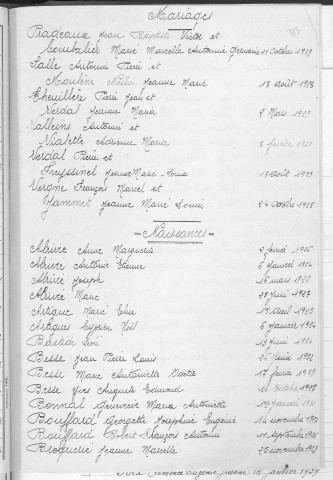 Mariages
Pradeaux Jean Baptiste Victor et
Marie Marcelle Antonine Germaine 19 Octobre 1929
Salle Antonin Pierre et
Moulin Noélie Jeanne Marie 18 août 1928
Theuillère Pierre Jean et
Verdal Jeanne Maria 2 Mars 1929
Valleins Antonin et
Vialette Adrienne Maria 8 février
Verdal Pierre et
Freyssinel Jeanne Marie Louise 18 août 1923
Vergne François Marcel et
Jammet Jeanne Marie Louise 24 Octobre 1928
- Naissances -
Abrive Anne Marguerite 2 1925
Abrive Antoine Etienne 6 janvier 1924
Abrive Joseph 16 mars 1925
Abrive Marc 28 Juin 1927
Artigue Marie Elise 17 Avril 1925
Artigues Eugène Noël 6 janvier 1924
Bastide René 13 Juin 1924
Besse Jean Pierre Louis 26 Juin
Besse Marie Antoinette Odette 17 février 1929
Besse Yves Auguste Edmond Octobre 1927
Bonnal Geneviève Maria Antoinette janvier
Bouffard Georgette Joséphine Eugénie 14 novembre 1922
Bouffard Robert François Antonin 11 septembre 1926
Broquerie Jeanne Marcelle 25 novembre 1923
Clémence Eugénie janvier 1924